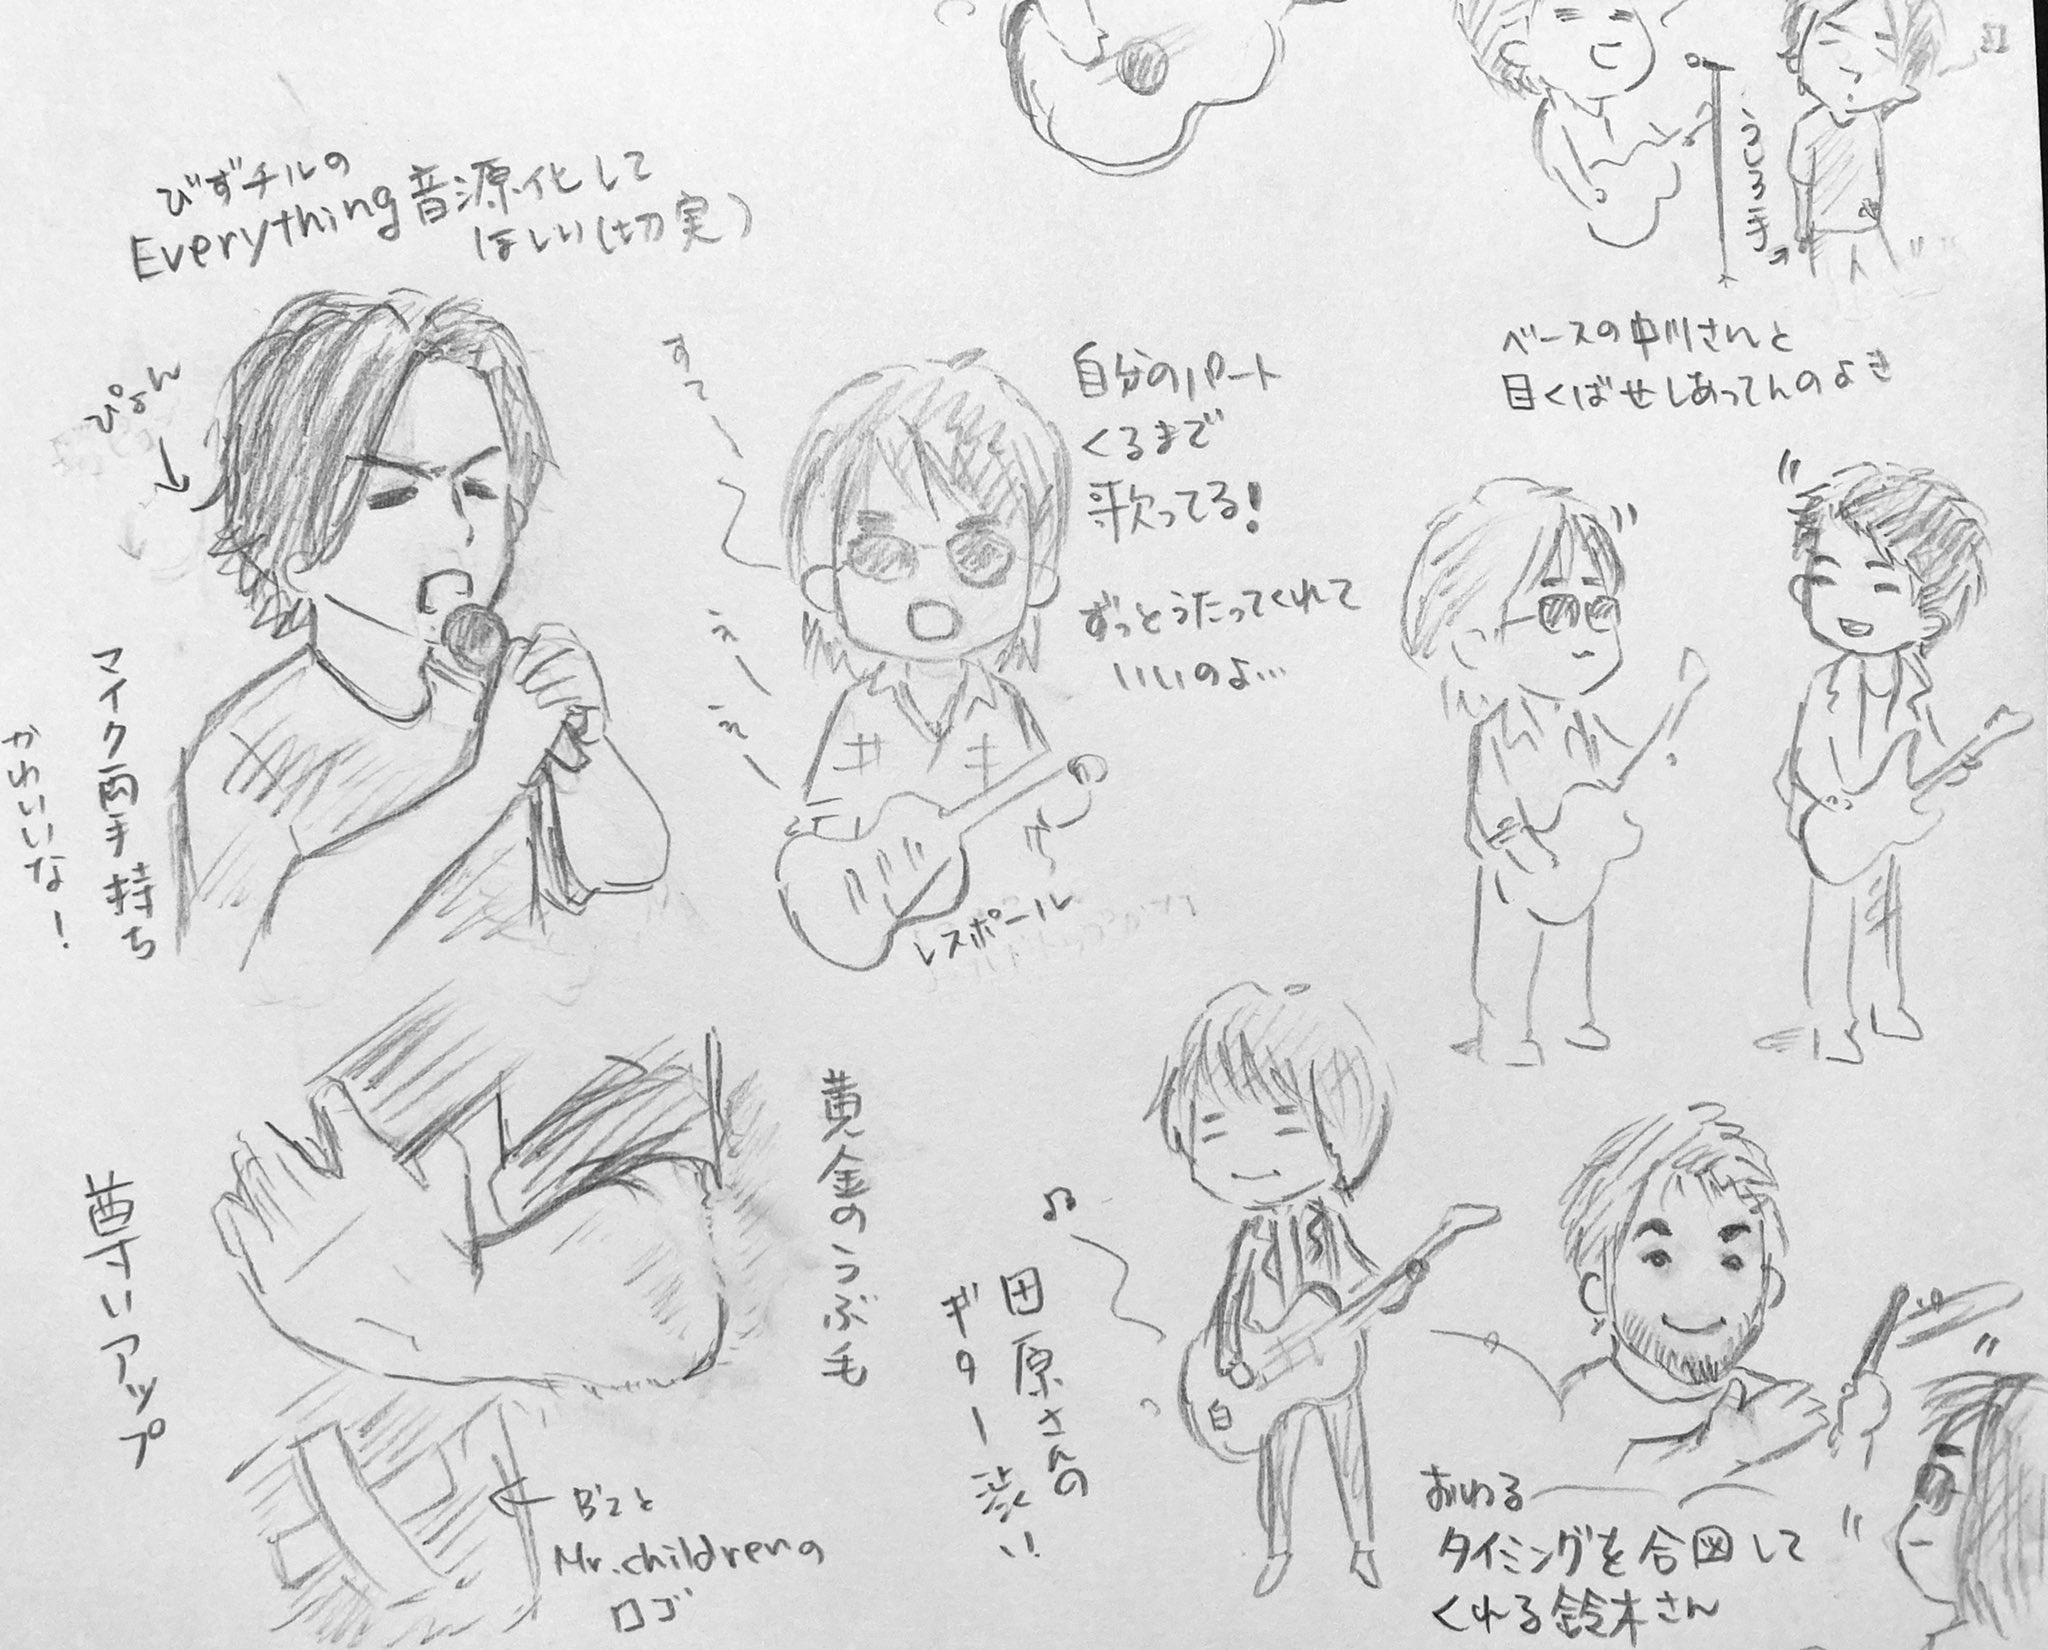 びずチルの
Everything音源化して
ほしい(切実)
ぴょん
マイク両手持ち
かわいいな!
すて〜
ぇー
ぇー
自分のパート
くるまで
歌ってる!
ずっとうたってくれて
いいのよ…
レスポール
うしろ手
ベースの中川さんと
目くばせしあってんのよき
尊いアップ
黄金のうぶ毛
B'zと
Mr.childrenの
ロゴ
田原さんの
ギター渋い!
白
おわる
タイミングを合図して
くれる鈴木さん